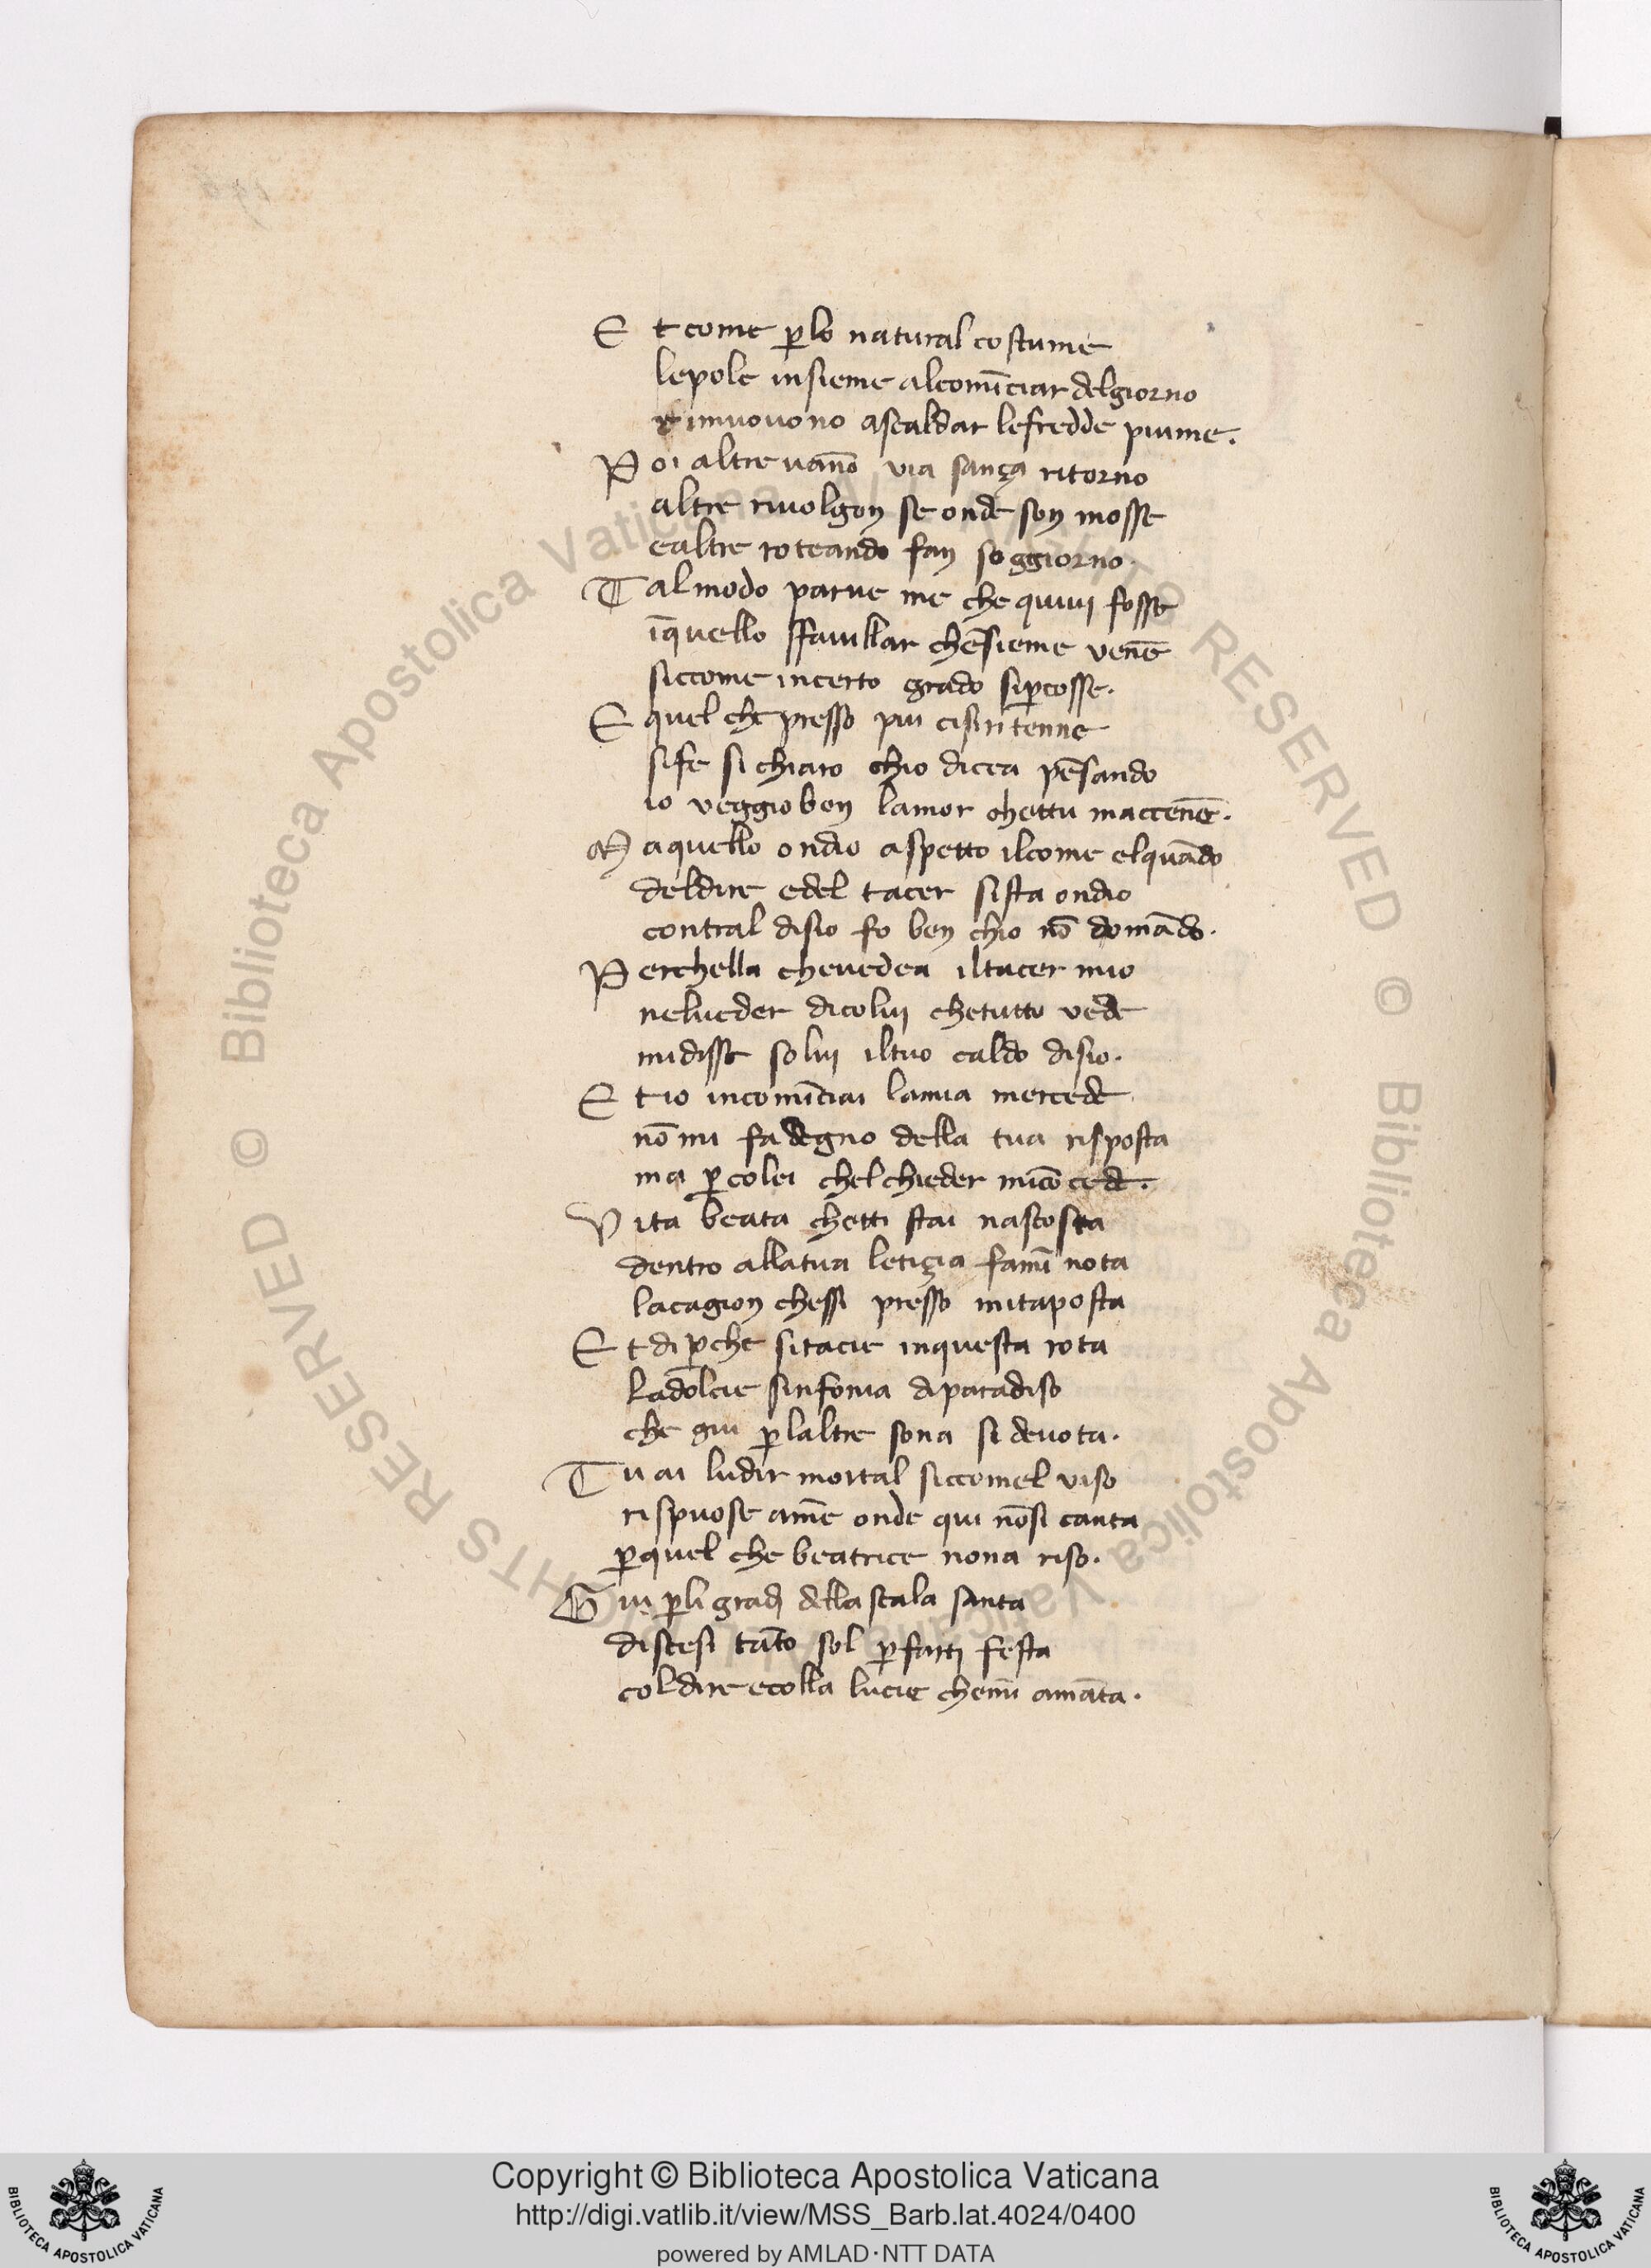 E t come ꝑlo natural costume
lepole insieme alcomīciar delgiorno
rimuovono ascaldar lefredde piume.
P oi altre uāno via sança ritorno
altre riuolgon se onde son mosse
ealtre roteando fan soggiorno.
T al modo parue me che quiui fosse
īquello ffauillar chēsieme venē
siccome incerto grado siꝑcosse.
E quel che presso piu cisiritenne
sife si chiaro chio dicea pēsando
io veggioben lamor chettu maccenē.
M aquello ondio aspetto ilcome elquādo
deldire edel tacer sista ondio
contral disio fo ben chio nō domādo.
P erchella cheuedea iltacer mio
nelueder dicolui chetutto vede
midisse solui iltuo caldo disio.
E t io incomīciai lamia mercede
nō mi fa degno della tua risposta
ma ꝑ colei chelchieder micōcede.
V ita beata chetti stai nascosta
dentro allatua letiçia famī nota
lacagion chessi presso mitaposta
E t di ꝑche sitacie inquesta rota
ladolcie sinfonia diparadiso
che giu ꝑlaltre sona si deuota.
T u ai ludir mortal siccomel viso
rispuose amē onde qui nōsi canta
ꝑquel che beatrice nona riso.
G iu ꝑli gradi della scala santa
discesi tāto sol ꝑfarti festa
coldire ecolla lucie chemī amāta.
Copyright © Biblioteca Apostolica Vaticana
http://digi.vatlib.it/view/MSS_Barb.lat.4024/0400
powered by AMLAD·NTT DATA
BIBLIOTECA APOSTOLICA VATICANA
BIBLIOTECA APOSTOLICA VATICANA